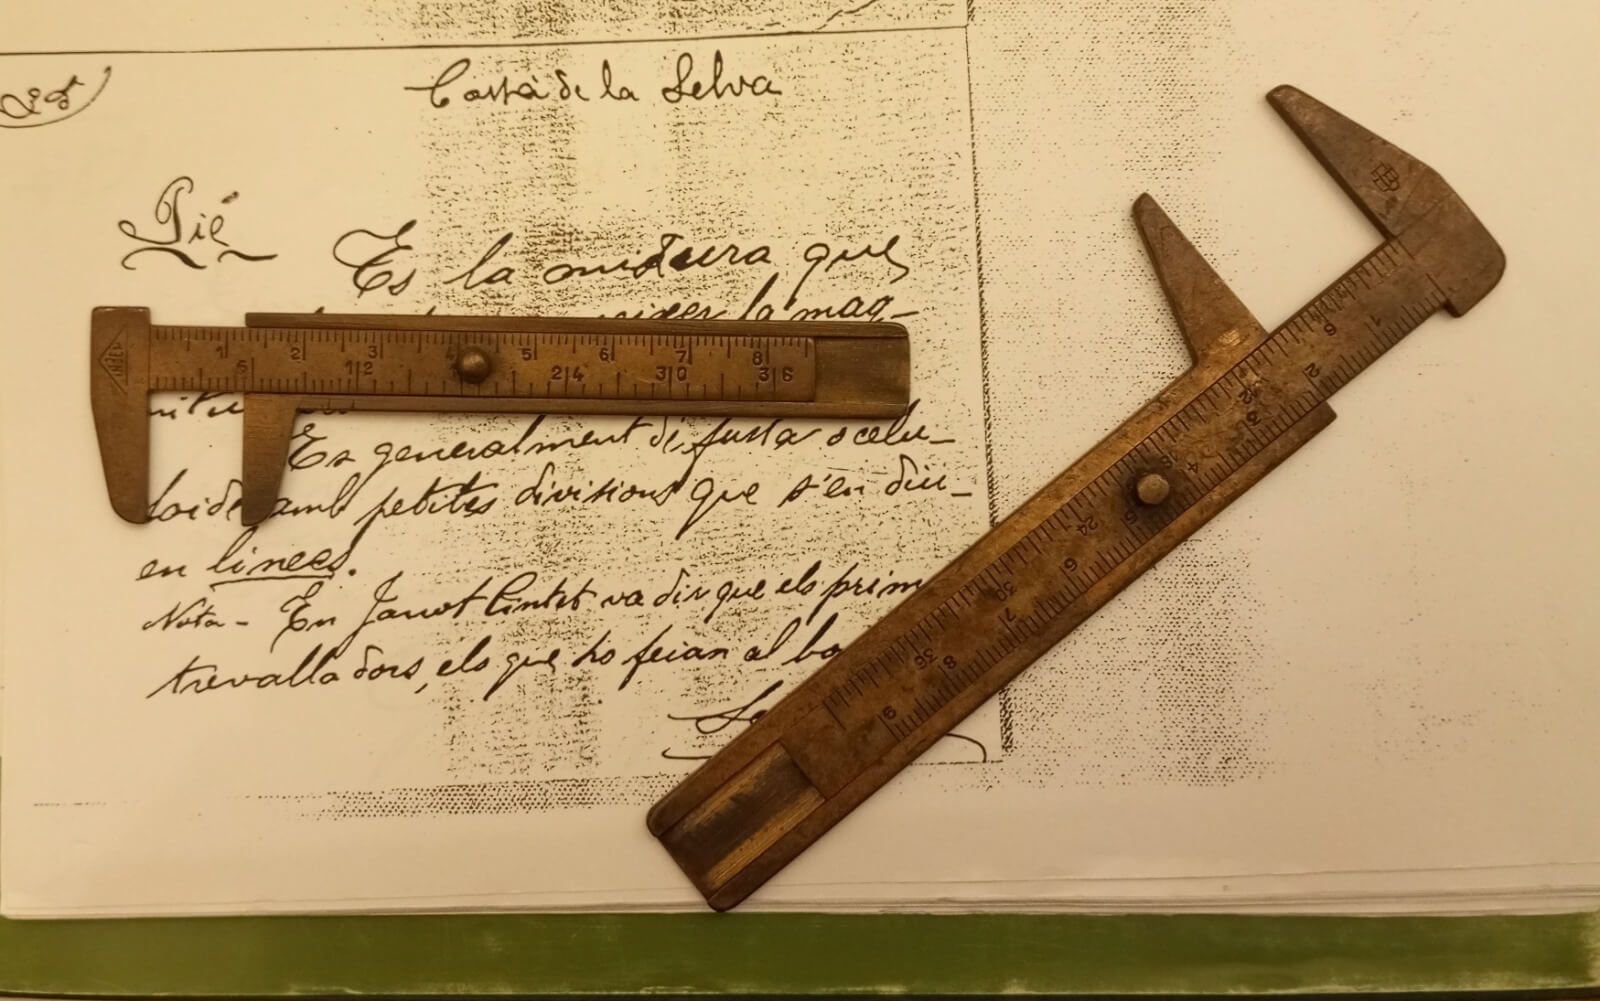 Cassà de la Selva
Pié
Es la mistura que
la maq-
Es generalment di fusta o celu-
loide amb petites divisions que s'en diu-
en linees.
Nota - En va dir que els prim
trevalladors, els que ho feian al
1 2 3 4 5 6 7 8
6 12 24 30 36
1 2 3 4 5 6 7 8 9
6 12 18 24 30 36